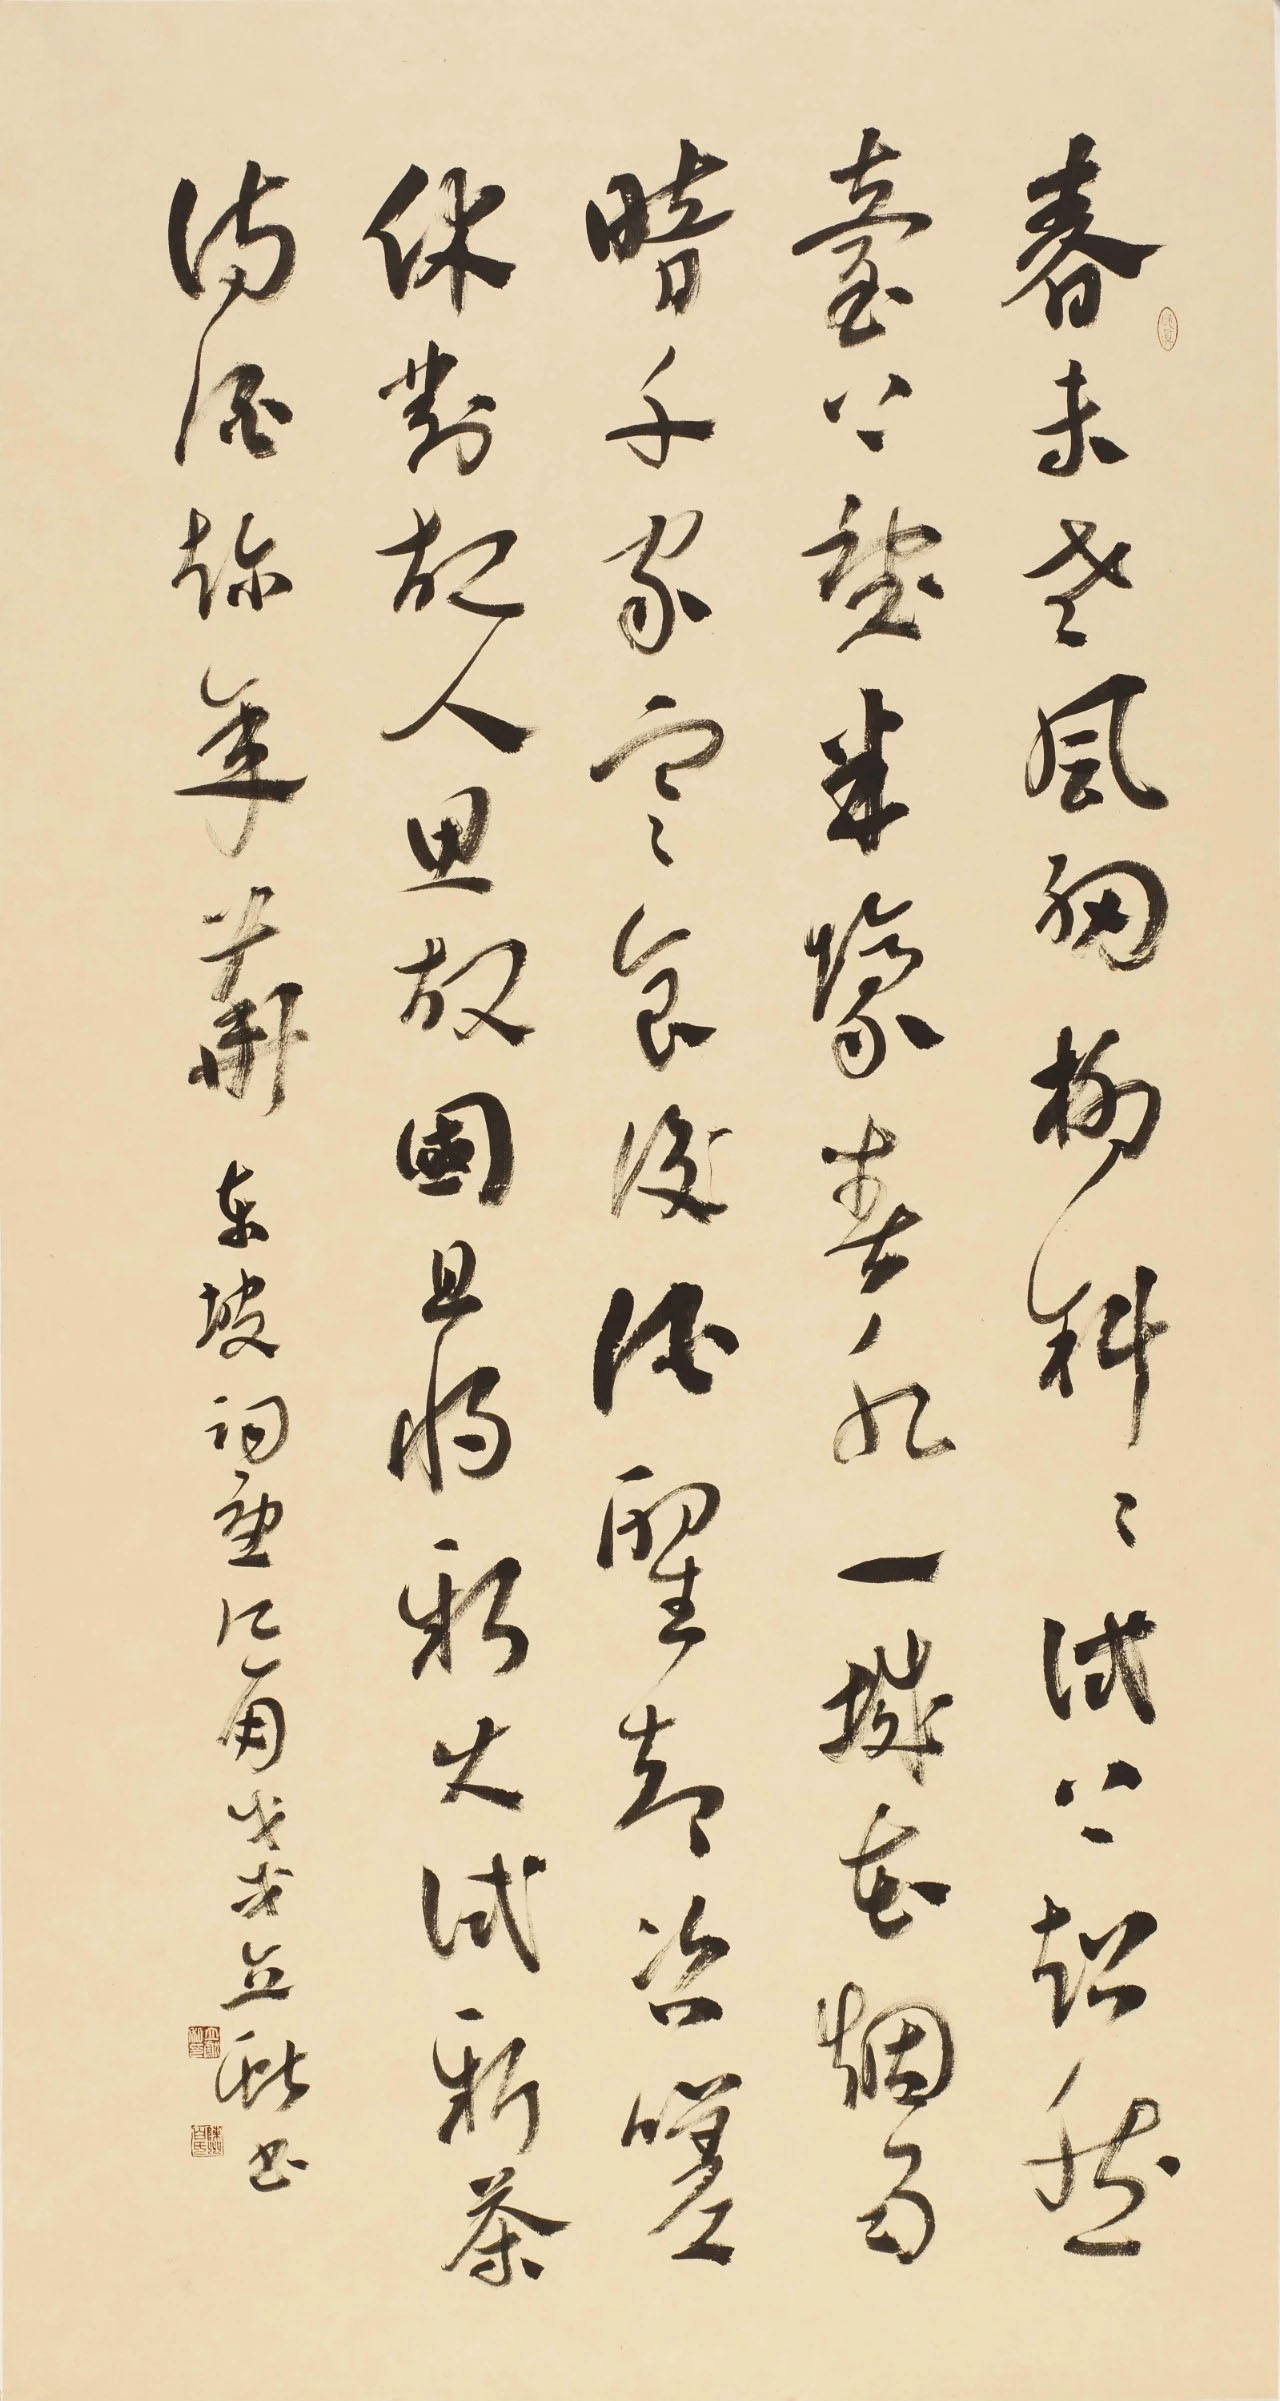 春未老風細柳斜〻試上超然
臺上望半壕春水一城花煙雨
暗千家寒食後酒醒却咨嗟
休對故人思故國且將新火試新茶
詩酒趁年華
東坡詞望江南
書